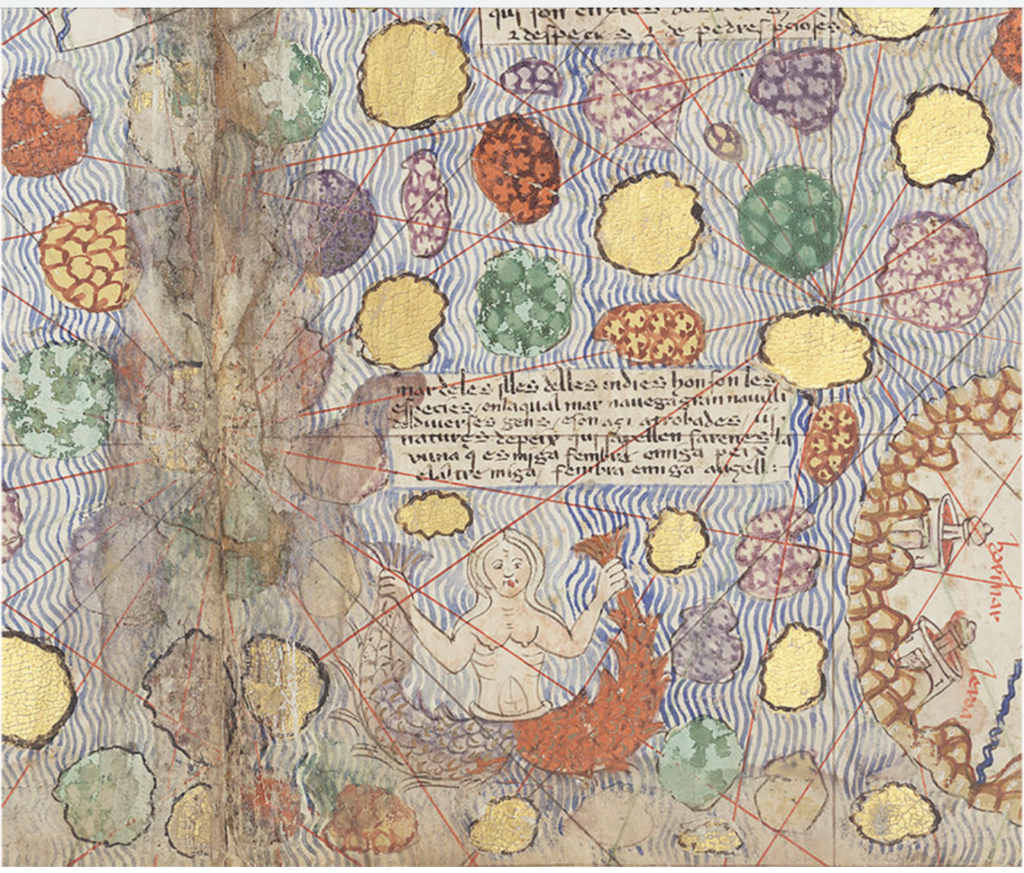 qui son
e despecies e de pedres precioses
mar deles illes delles indies hon son les
especies / en laqual mar navega gran navili
de diverses gens / e son açi atrobades iii
natures de peix qui sapellen sarenes la
vuna q es miga fembra e miga peix
e laltre miga fembra e miga auçell :